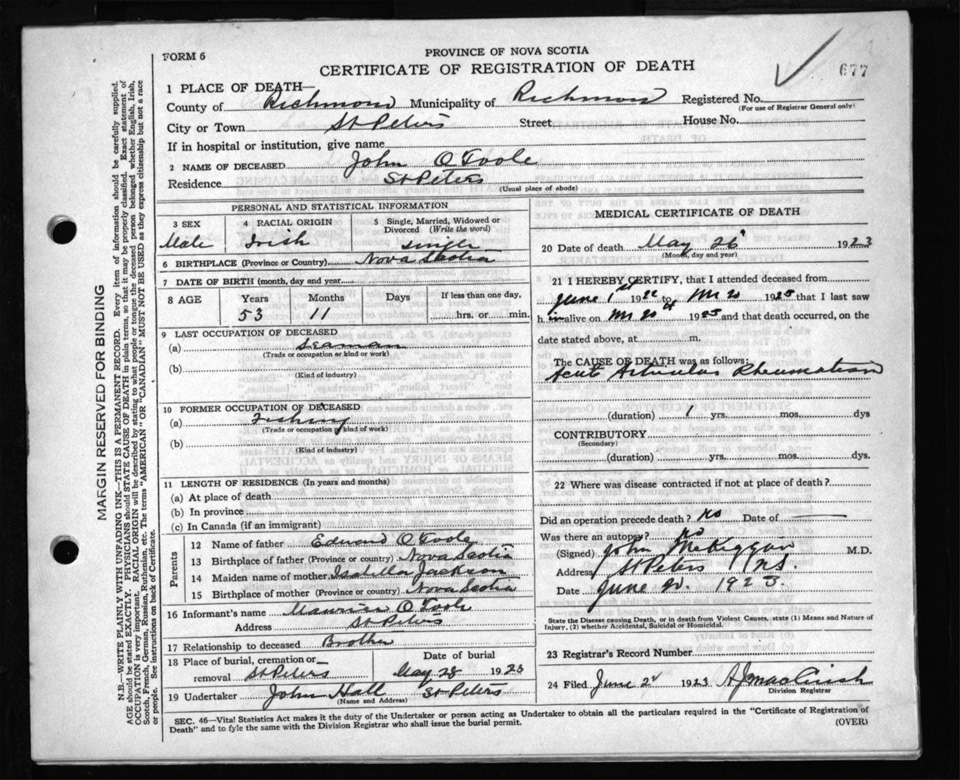 FORM 6
PROVINCE OF NOVA SCOTIA
CERTIFICATE OF REGISTRATION OF DEATH
677
1 PLACE OF DEATH—
County of Richmond Municipality of Richmond Registered No.
(For use of Registrar General only)
City or Town St Peters Street House No.
If in hospital or institution, give name
2 NAME OF DECEASED John O'Toole
Residence St Peters
(Usual place of abode)
PERSONAL AND STATISTICAL INFORMATION
3 SEX 4 RACIAL ORIGIN 5 Single, Married, Widowed or Divorced (Write the word)
Male Irish single
6 BIRTHPLACE (Province or Country) Nova Scotia
7 DATE OF BIRTH (month, day and year)
8 AGE Years Months Days If less than one day,
53 11 hrs. or min.
9 LAST OCCUPATION OF DECEASED
(a) Seaman
(Trade or occupation or kind or work)
(b)
(Kind of industry)
10 FORMER OCCUPATION OF DECEASED
(a) Fishing
(Trade or occupation or kind of work)
(b)
(Kind of industry)
11 LENGTH OF RESIDENCE (In years and months)
(a) At place of death
(b) In province
(c) In Canada (if an immigrant)
Parents
12 Name of father Edward O'Toole
13 Birthplace of father (Province or country) Nova Scotia
14 Maiden name of mother Isabella Jackson
15 Birthplace of mother (Province or country) Nova Scotia
16 Informant's name Maurice O'Toole
Address St Peters
17 Relationship to deceased Brother
18 Place of burial, cremation or Date of burial
removal St Peters May 28 1923
19 Undertaker John Hall St Peters
(Name and Address)
MEDICAL CERTIFICATE OF DEATH
20 Date of death May 26 1923
(Month, day and year)
21 I HEREBY CERTIFY, that I attended deceased from
June 1st 1922 to 20 192 that I last saw
h im alive on 20 192 and that death occurred, on the
date stated above, at m.
The CAUSE OF DEATH was as follows:
Acute Articular Rheumatism
(duration) 1 yrs. mos. dys
CONTRIBUTORY
(Secondary)
(duration) yrs. mos. dys.
22 Where was disease contracted if not at place of death?
Did an operation precede death? No Date of
Was there an autopsy? No
(Signed) John McKeggan M.D.
Address St Peters N.S.
Date June 20. 1923.
State the Disease causing Death, or in death from Violent Causes, state (1) Means and Nature of
Injury, (2) whether Accidental, Suicidal or Homicidal.
23 Registrar's Record Number
24 Filed June 2 1923
Division Registrar
SEC. 46—Vital Statistics Act makes it the duty of the Undertaker or person acting as Undertaker to obtain all the particulars required in the "Certificate of Registration of
Death" and to fyle the same with the Division Registrar who shall issue the burial permit. (OVER)
MARGIN RESERVED FOR BINDING
N.B.—WRITE PLAINLY WITH UNFADING INK—THIS IS A PERMANENT RECORD. Every item of information should be carefully supplied.
AGE should be stated EXACTLY. PHYSICIANS should STATE CAUSE OF DEATH in plain terms, so that it may be properly classified. Exact statement of
OCCUPATION is very important. RACIAL ORIGIN will be described by stating to what people or tongue the deceased person belonged whether English, Irish,
Scotch, French, German, Russian, Ruthenian, etc. The terms "AMERICAN" or "CANADIAN" MUST NOT BE USED as they express citizenship but not a race
or people. See instructions on back of Certificate.